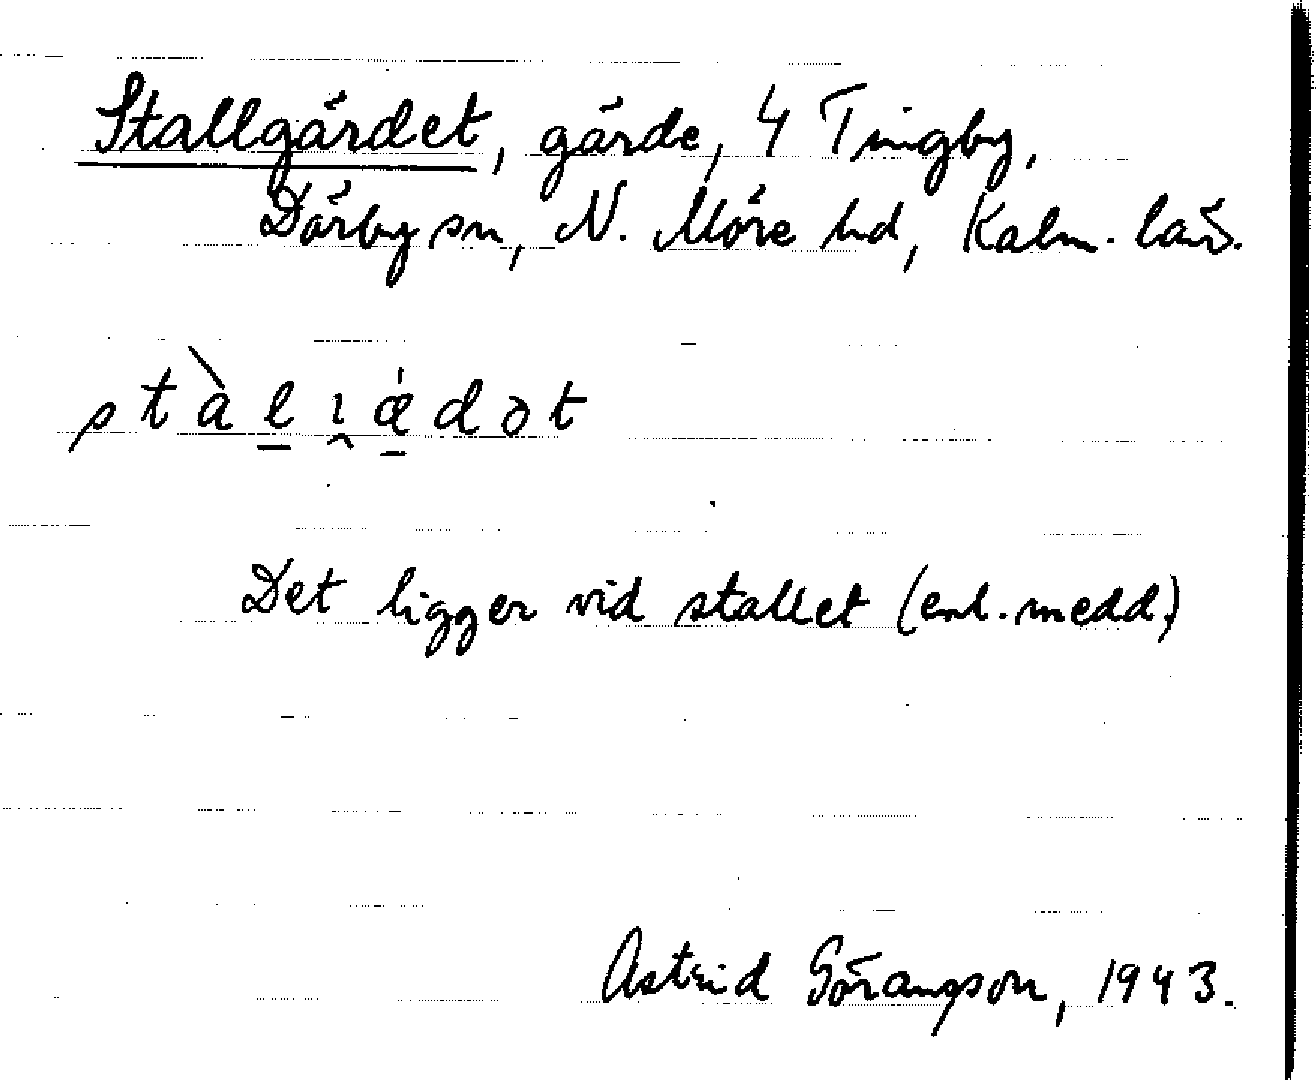 Stallgärdet, gärde, 4 Tingby,
Dörby sn, N. Möre hd, Kalm. län.
stàlı̯ædət
Det ligger vid stallet (enl. medd.)
Astrid Göransson, 1943.